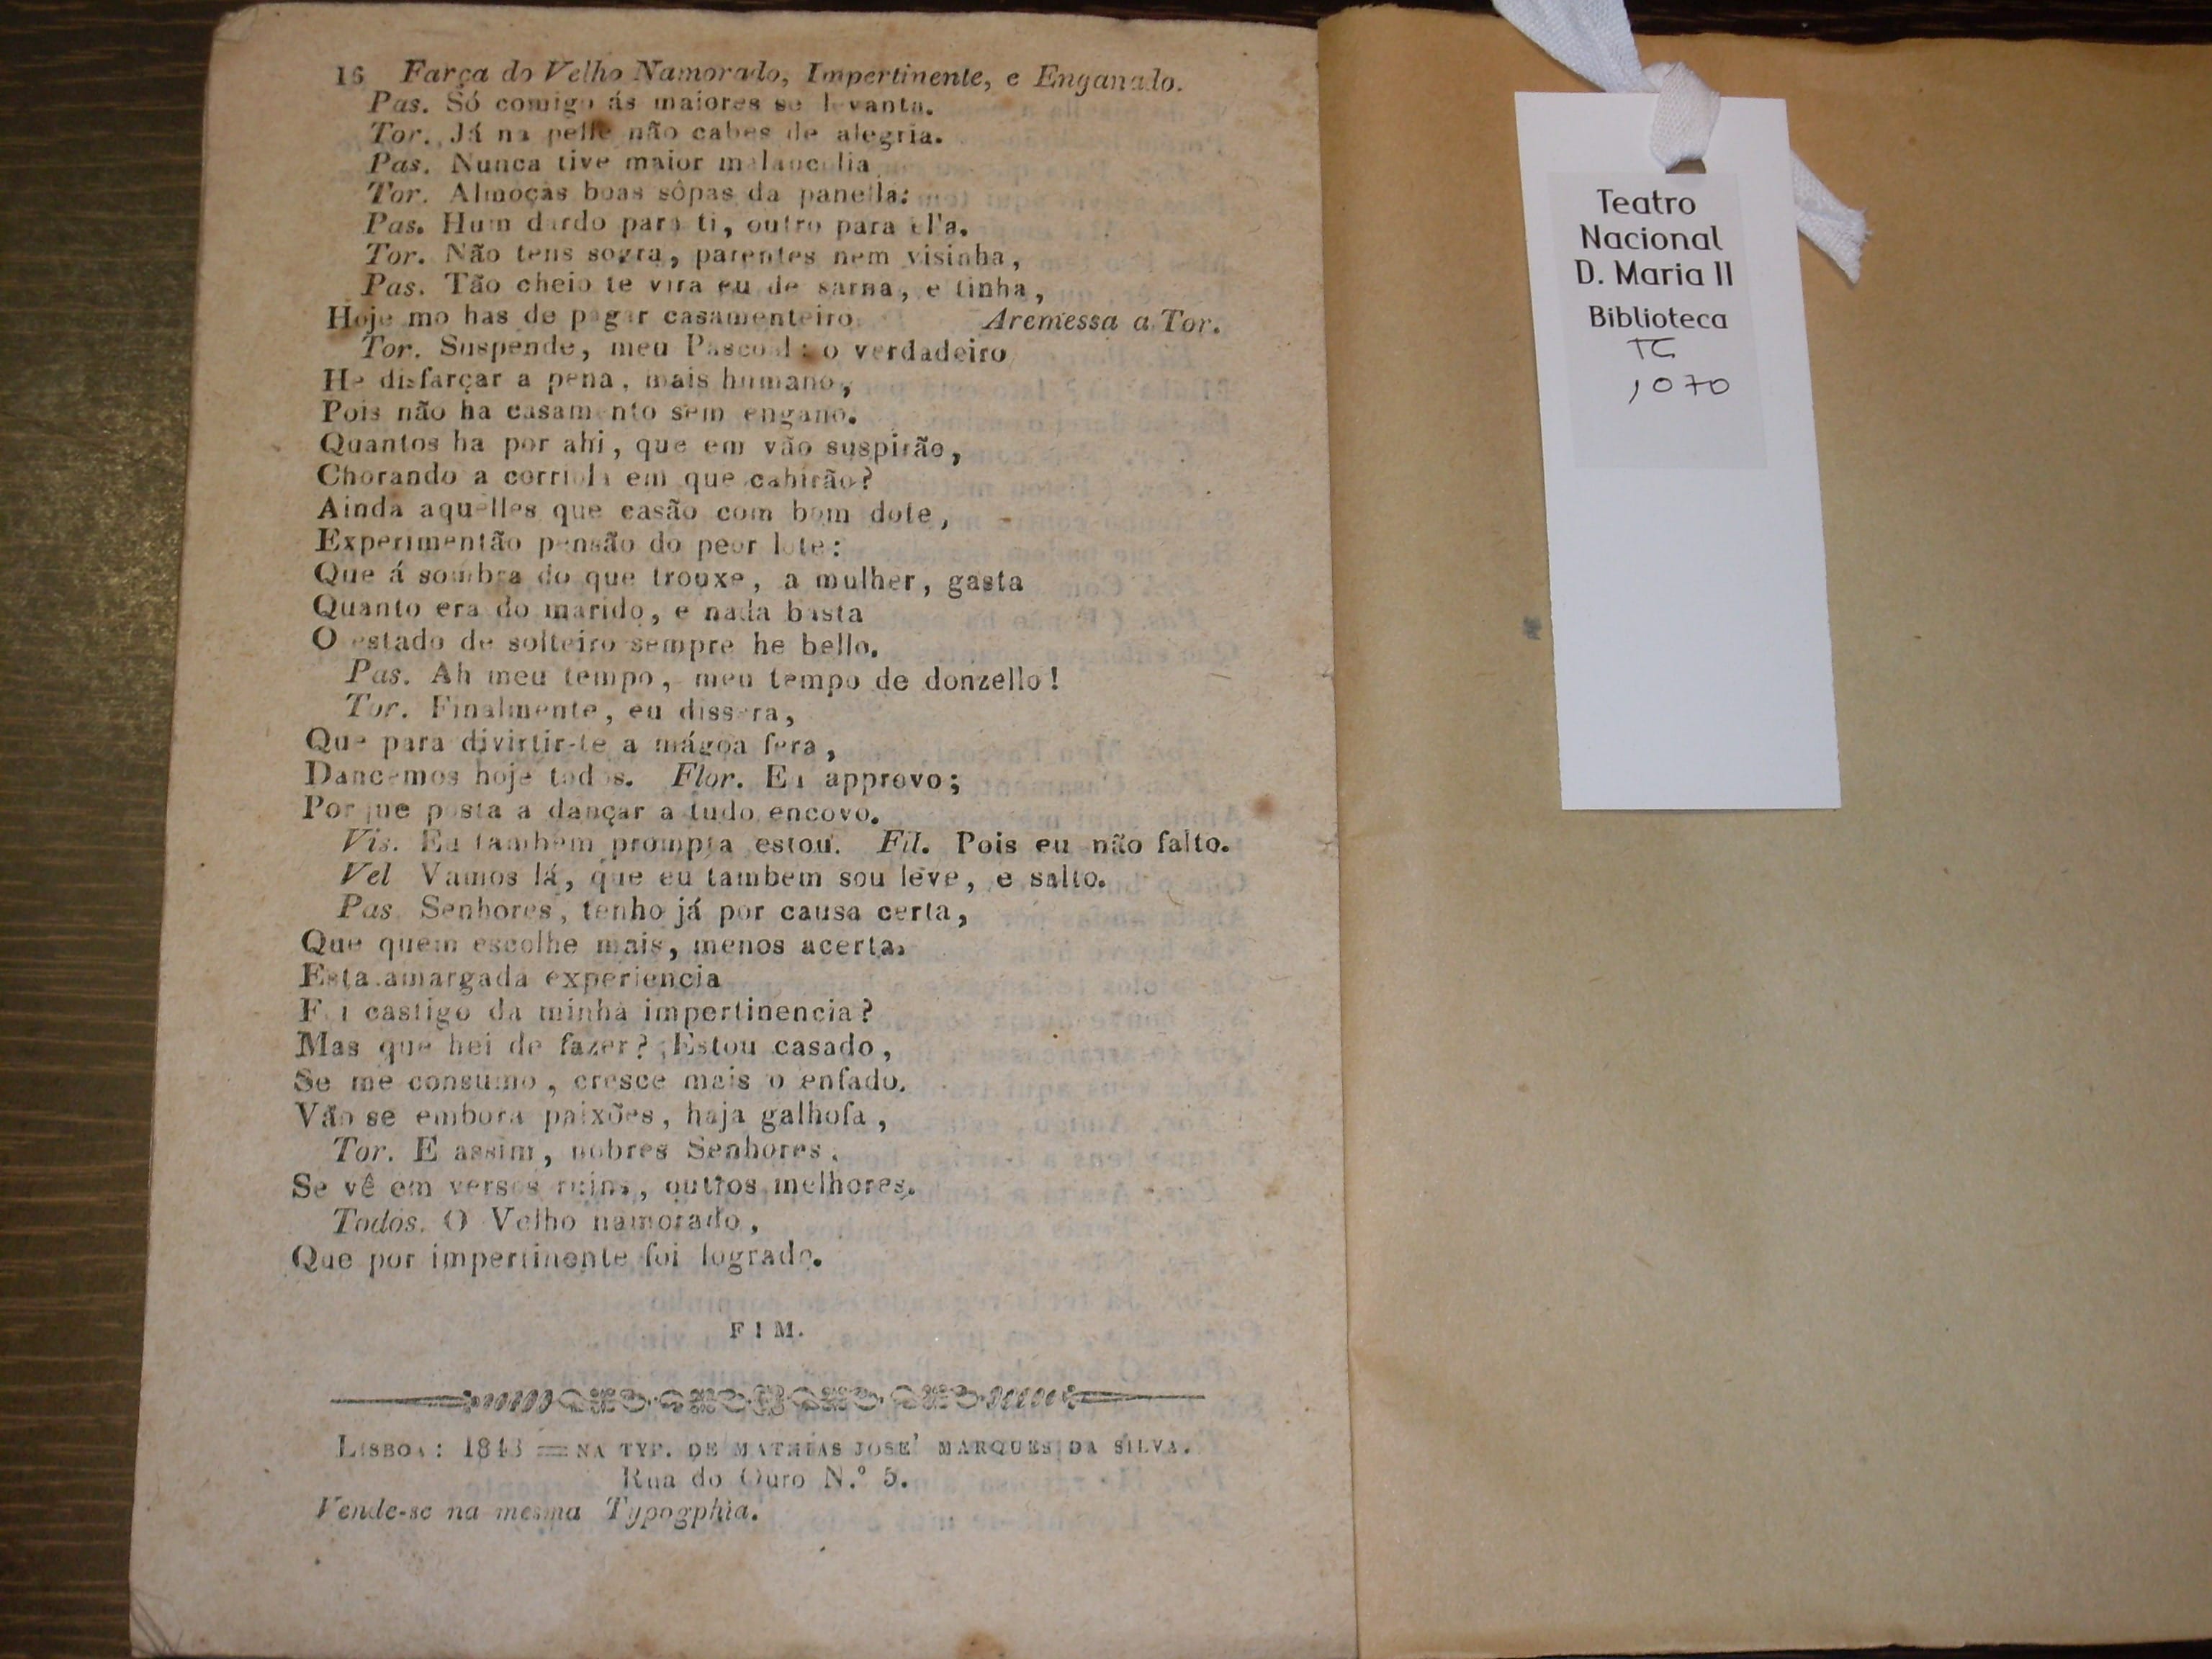 16 Farça do Velho Namorado, Impertinente, e Enganado.
Pas. Só comigo ás maiores se levanta.
Tor. Já na pelle não cabes de alegria.
Pas. Nunca tive maior melancolia
Tor. Almoças boas sôpas da panella:
Pas. Hum dardo para ti, outro para ella.
Tor. Não tens sogra, parentes nem visinha,
Pas. Tão cheio te vira eu de sarna, e tinha,
Hoje mo has de pagar casamenteiro. Aremessa a Tor.
Tor. Suspende, meu Pascoal: o verdadeiro
He disfarçar a pena, mais humano,
Pois não ha casamento sem engano.
Quantos ha por ahi, que em vão suspirão,
Chorando a corriola em que cahirão?
Ainda aquelles que casão com bom dote,
Experimentão pensão do peor lote:
Que á sombra do que trouxe, a mulher, gasta
Quanto era do marido, e nada basta
O estado de solteiro sempre he bello.
Pas. Ah meu tempo, meu tempo de donzello!
Tor. Finalmente, eu dissera,
Que para divirtir-te a mágoa fera,
Dancemos hoje todos. Flor. Eu approvo;
Porque posta a dançar a tudo encovo.
Vis. Eu tambem prompta estou. Fil. Pois eu não falto.
Vel Vamos lá, que eu tambem sou leve, e salto.
Pas. Senhores, tenho já por causa certa,
Que quem escolhe mais, menos acerta.
Esta amargada experiencia
Foi castigo da minha impertinencia?
Mas que hei de fazer? Estou casado,
Se me consumo, cresce mais o enfado.
Vão se embora paixões, haja galhofa,
Tor. E assim, nobres Senhores,
Se vê em versos ruins, outros melhores.
Todos. O Velho namorado,
Que por impertinente foi logrado.
FIM.
LISBOA: 1843 = NA TYP. DE MATHIAS JOSE' MARQUES DA SILVA.
Rua do Ouro N.º 5.
Vende-se na mesma Typogphia.
Teatro
Nacional
D. Maria II
Biblioteca
TC
1070